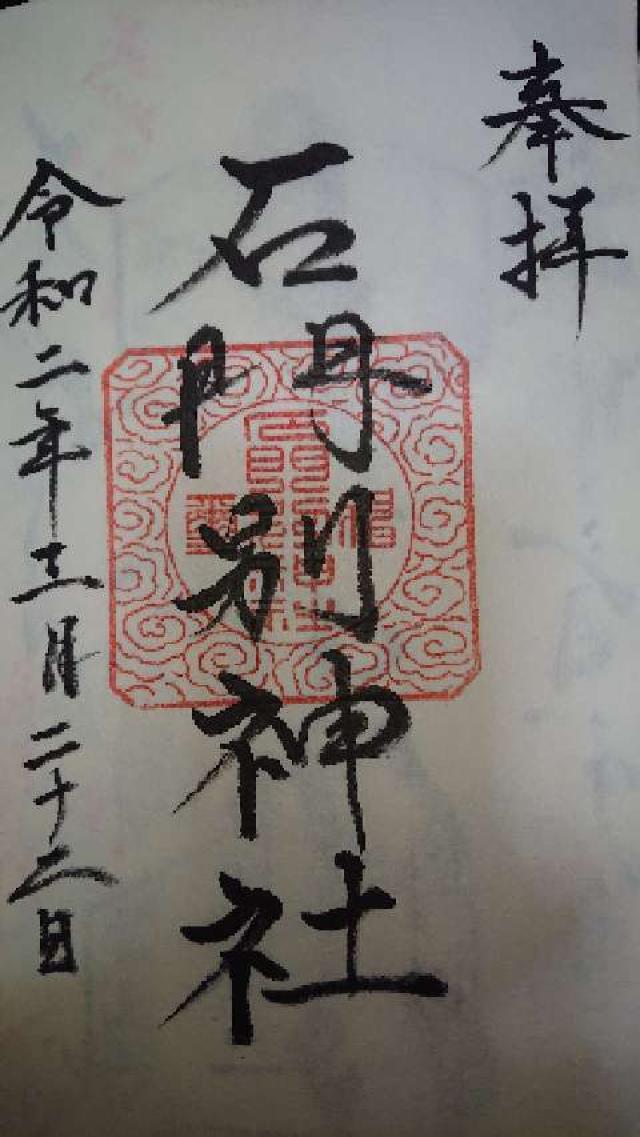 奉拝
石門別神社
令和二年十二月二十二日